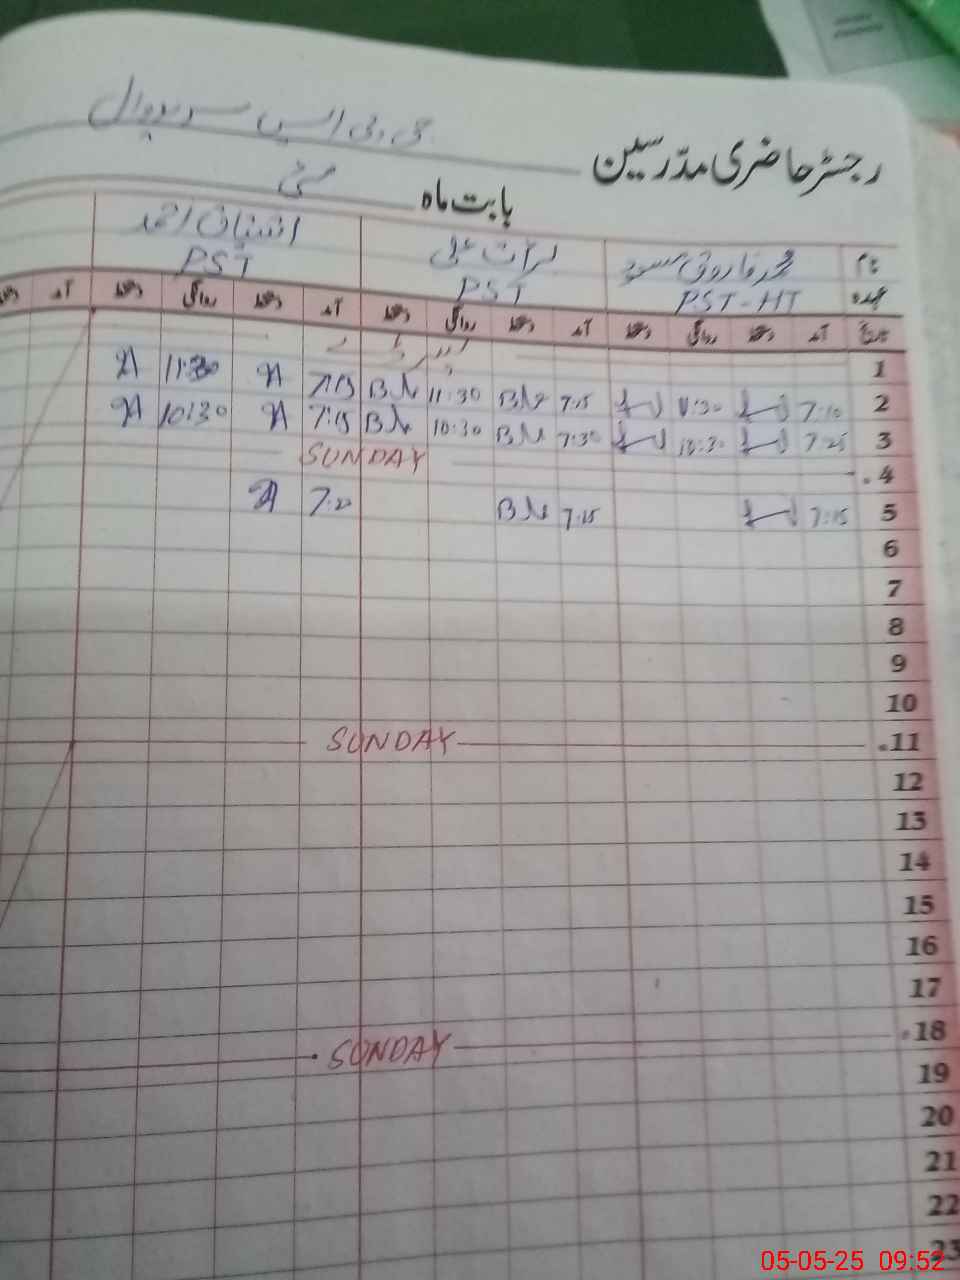 رجسٹر حاضری مدرسین جی پی ایس
بابت ماہ مئی
نام محمد فاروق مسعود علی اشتیاق احمد
عہدہ PST-HT PST PST
تاریخ آمد دستخط روانگی دستخط آمد دستخط روانگی دستخط آمد دستخط روانگی دستخط آمد
1
2 7:10 11:30 7:15 11:30 7:15 11:30
3 7:25 10:30 7:30 10:30 7:15 10:30
4 SUNDAY
5 7:15 7:15 7:20
6
7
8
9
10
11 SUNDAY
12
13
14
15
16
17
18 SUNDAY
19
20
21
22
23
05-05-25 09:52